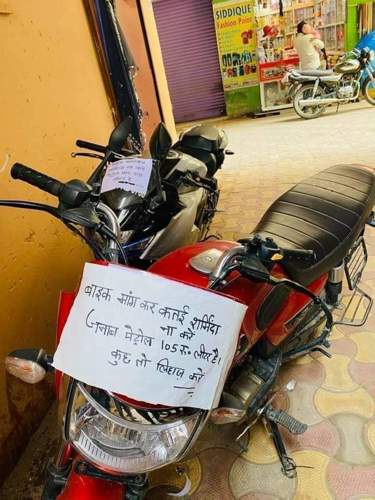 SIDDIQUE
Fashion Point
बाइक मांग कर कतई शर्मिंदा
ना करे
(जनाब पेट्रोल 105 रु॰ लीटर है।
कुछ तो लिहाज करो